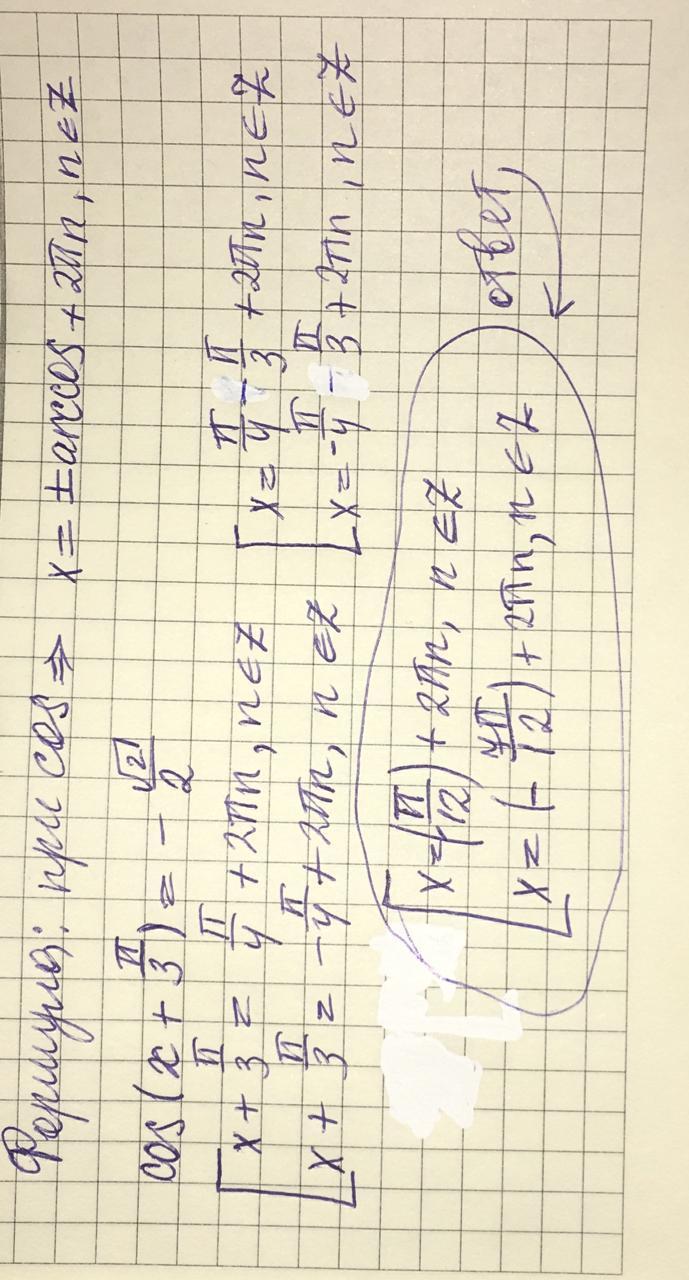 Формула: при cos ⇒ x = ± arccos + 2πn, n∈Z
cos(x + π/3) = - √2/2
[ x + π/3 = π/4 + 2πn, n∈Z
x + π/3 = -π/4 + 2πn, n∈Z
[ x = π/4 - π/3 + 2πn, n∈Z
x = -π/4 - π/3 + 2πn, n∈Z
ответ
[ x = (π/12) + 2πn, n∈Z
x = (- 7π/12) + 2πn, n∈Z